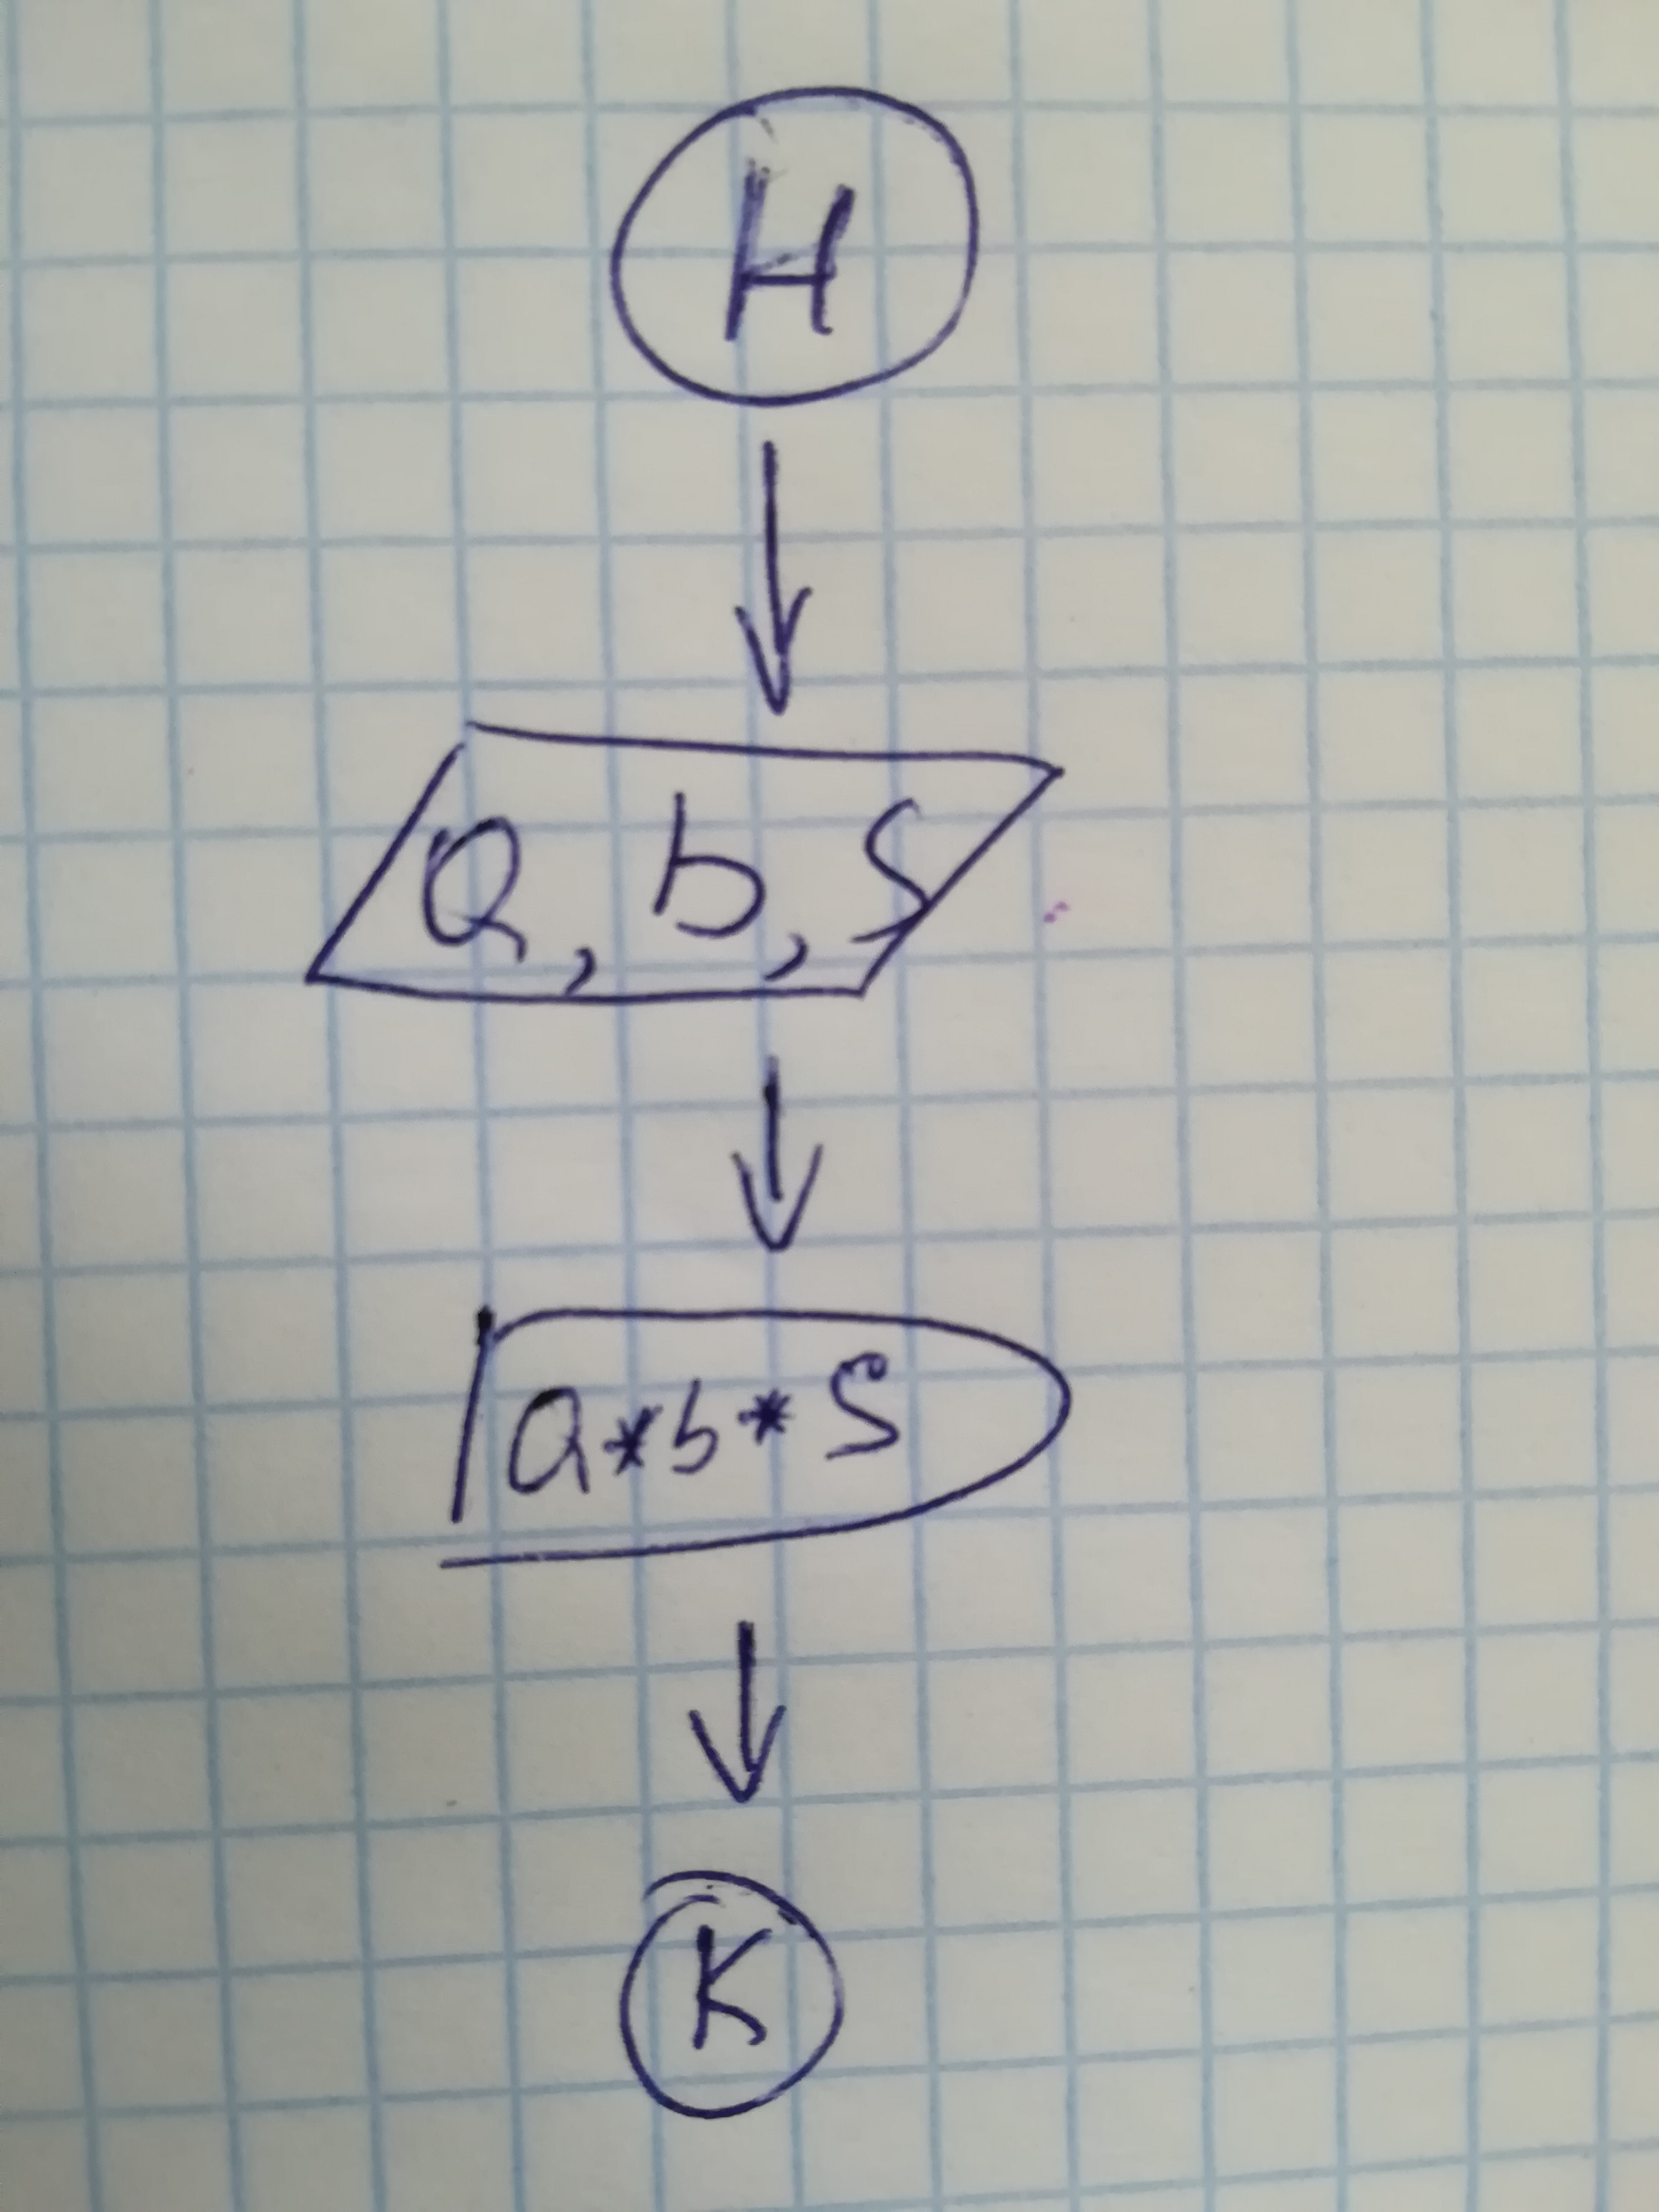 Н
a, b, S
a*b*S
К